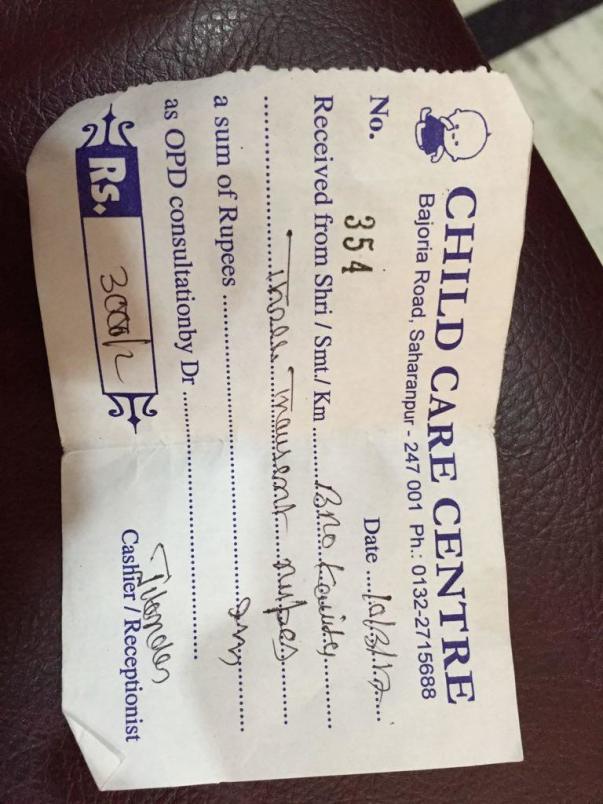 CHILD CARE CENTRE
Bajoria Road, Saharanpur - 247 001 Ph.: 0132-2715688
No. 354 Date ....10/3/17....
Received from Shri / Smt./ Km ..................
...............Three Thousand rupees...............
a sum of Rupees .................. only ..................
as OPD consultationby Dr ..................
Rs. 3000/-
Cashier / Receptionist